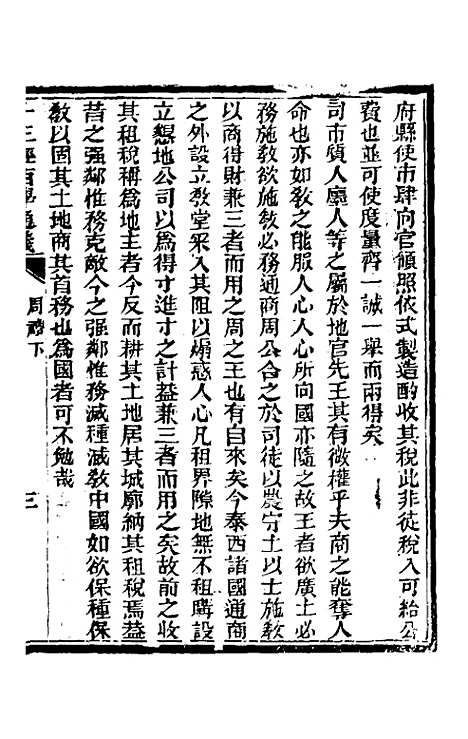 府縣使市肆向官領照依式製造酌收其稅此非徒稅入可給公
費也並可使度量齊一誠一舉而兩得矣
司市質人廛人等之屬於地官先王其有微權乎夫商之能奪人
命也亦如敎之能服人心人心所向國亦隨之故王者欲廣土必
務施敎欲施敎必務通商周公合之於司徒以農守土以士施敎
以商得財兼三者而用之周之王有自來矣今泰西諸國通商
之外設立敎堂深入其阻以煽惑人心凡租界隙地無不租購設
立懇地公司以爲得寸進寸之計蓋兼三者而用之矣故前之收
其租稅稱爲地主者今反而耕其土地居其城廓納其租稅焉蓋
昔之强鄰惟務克敵今之强鄰惟務滅種滅敎中國如欲保種保
敎以固其土地商其首務也爲國者可不勉哉
十三經西學通義
周禮下
三